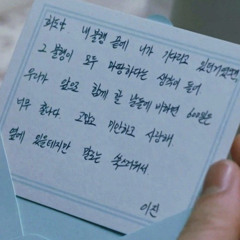 희도야 내 불행 끝에 니가 기다리고 있던거였다면,
그 불행이 모두 마땅하다는 생각이 들어
우리가 앞으로 함께 할 날들에 비하면 600일은
너무 짧다 고맙고 미안하고 사랑해
옆에 있을테지만 말로는 쑥스러워서
이진